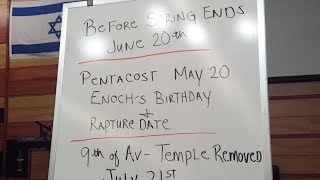 BEFORE SPRING ENDS
JUNE 20th
PENTACOST MAY 20
ENOCH'S BIRTHDAY
+
RAPTURE DATE
9th OF AV - TEMPLE REMOVED
JULY 21ST